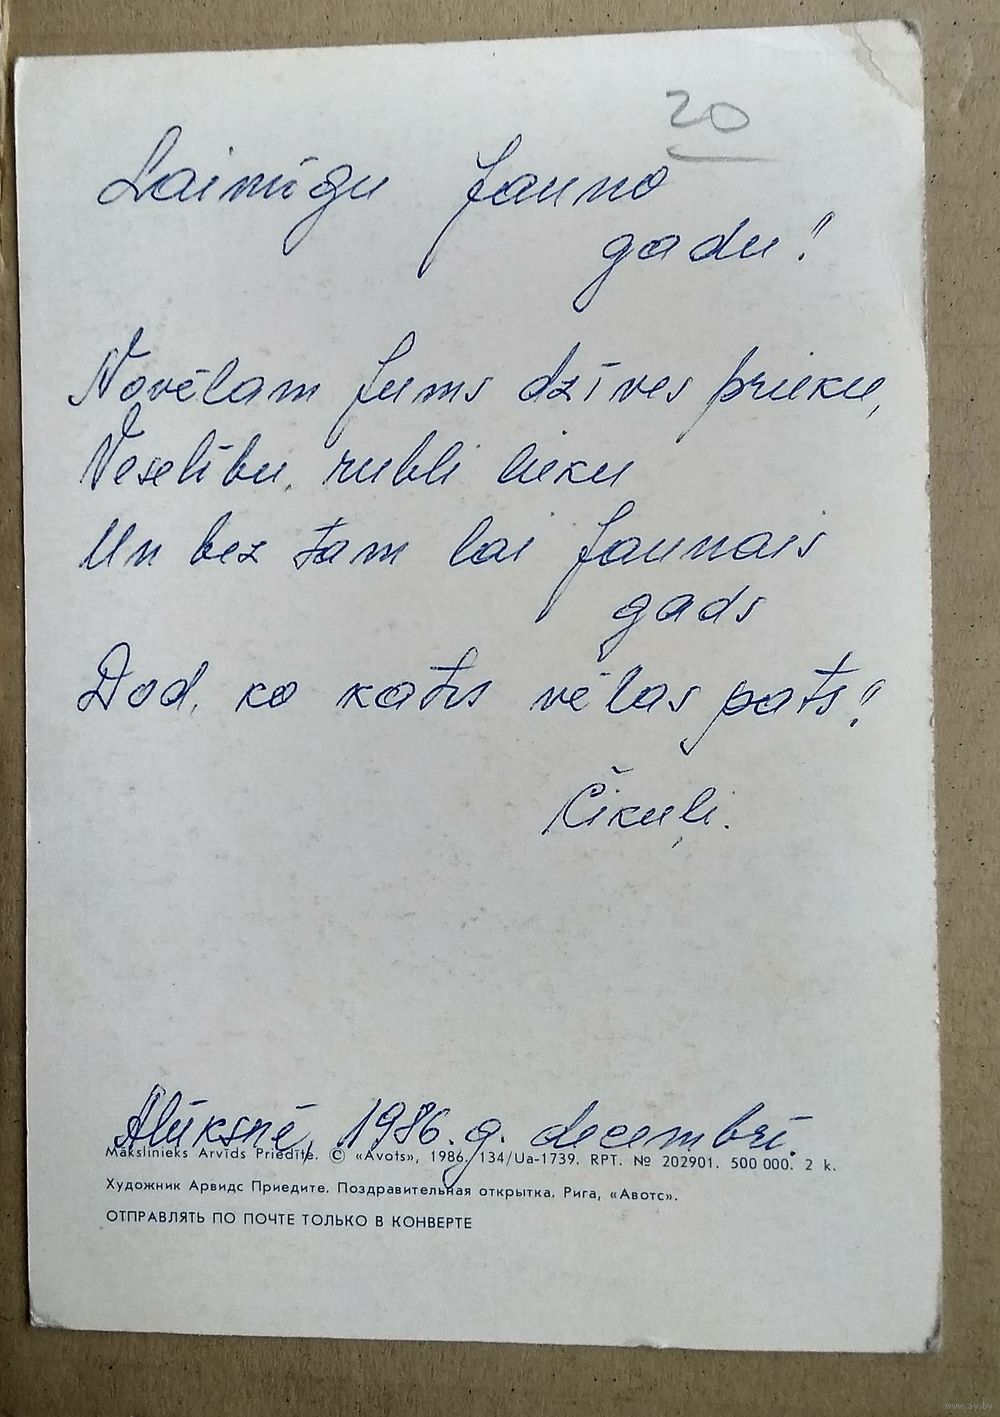 20
Laimīgu Jauno
gadu!
Novēlam Jums dzīves prieku,
Veselību, rubli lieku
Un bez tam lai Jaunais
gads
Dod, ko katrs vēlas pats!
Čikuļi.
Alūksnē, 1986. g. decembrī.
Mākslinieks Arvīds Priedīte. © «Avots», 1986. 134/Ua-1739. RPT. № 202901. 500 000. 2 k.
Художник Арвидс Приедите. Поздравительная открытка. Рига, «Авотс».
ОТПРАВЛЯТЬ ПО ПОЧТЕ ТОЛЬКО В КОНВЕРТЕ
www.ay.by